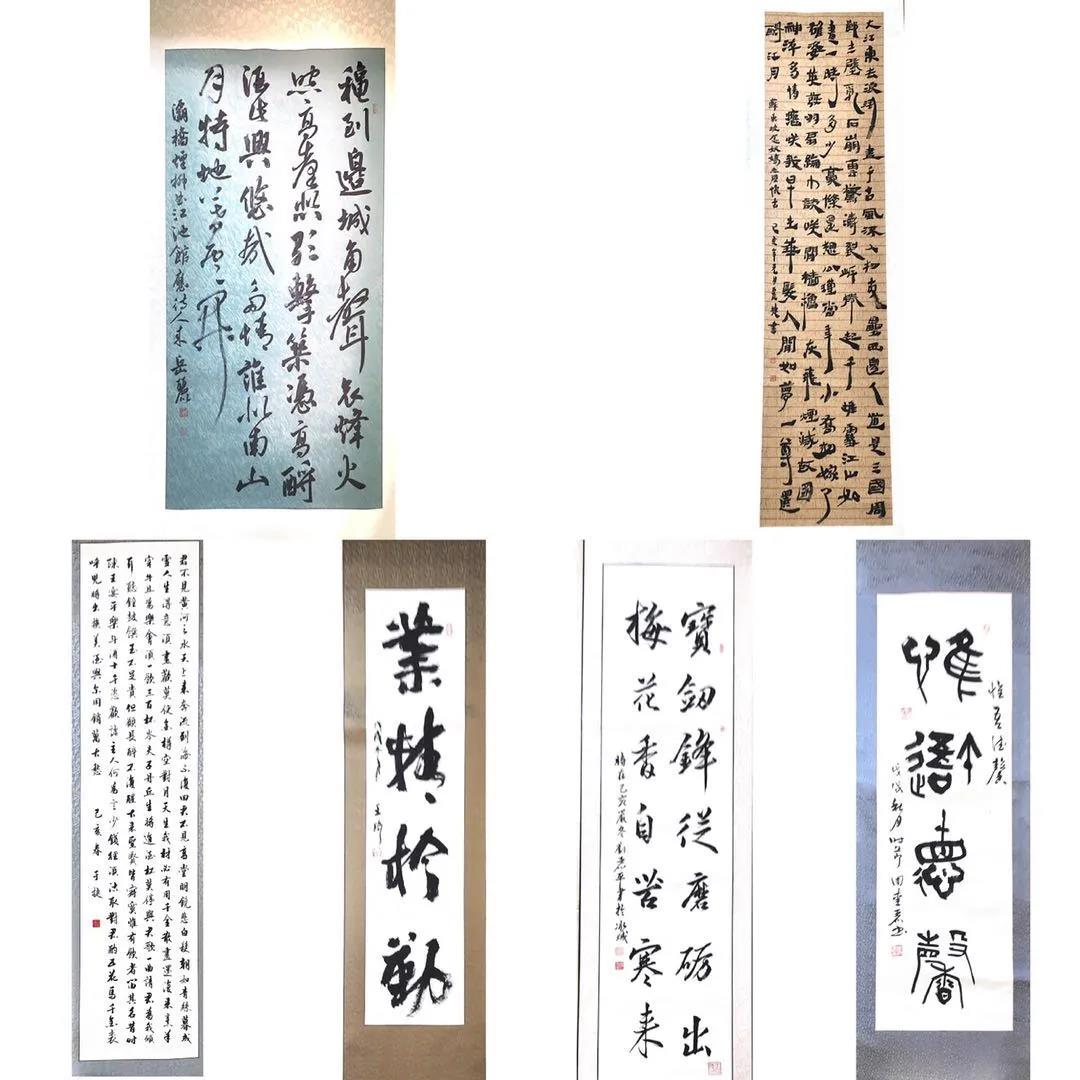 穐到邊城角聲哀烽火
照高臺悲歌擊築憑高酹
酒此興悠哉多情誰似南山
月特地暮雲開
灞橋煙柳曲江池館應待人來 岳麗
大江東去浪淘盡千古風流人物故壘西邊人道是三國周
郎赤壁亂石崩雲驚濤裂岸捲起千堆雪江山如
畫一時多少豪傑遙想公瑾當年小喬初嫁了
雄姿英發羽扇綸巾談笑間檣櫓灰飛煙滅故國
神游多情應笑我早生華髮人間如夢一尊還
酹江月 蘇東坡念奴嬌赤壁懷古 己亥年 書
君不見黃河之水天上來奔流到海不復回君不見高堂明鏡悲白髮朝如青絲暮成
雪人生得意須盡歡莫使金樽空對月天生我材必有用千金散盡還復來烹羊
宰牛且為樂會須一飲三百杯岑夫子丹丘生將進酒杯莫停與君歌一曲請君為我傾
耳聽鐘鼓饌玉不足貴但願長醉不復醒古來聖賢皆寂寞惟有飲者留其名昔時
陳王宴平樂斗酒十千恣歡謔主人何為言少錢徑須沽取對君酌五花馬千金裘
呼兒將出換美酒與爾同銷萬古愁 己亥春 于捷
業精於勤
寶劔鋒從磨礪出
梅花香自苦寒來
時在己亥嚴冬劉 平書於冰城
惟吾德馨
惟吾德馨
戊戌秋月 田 書